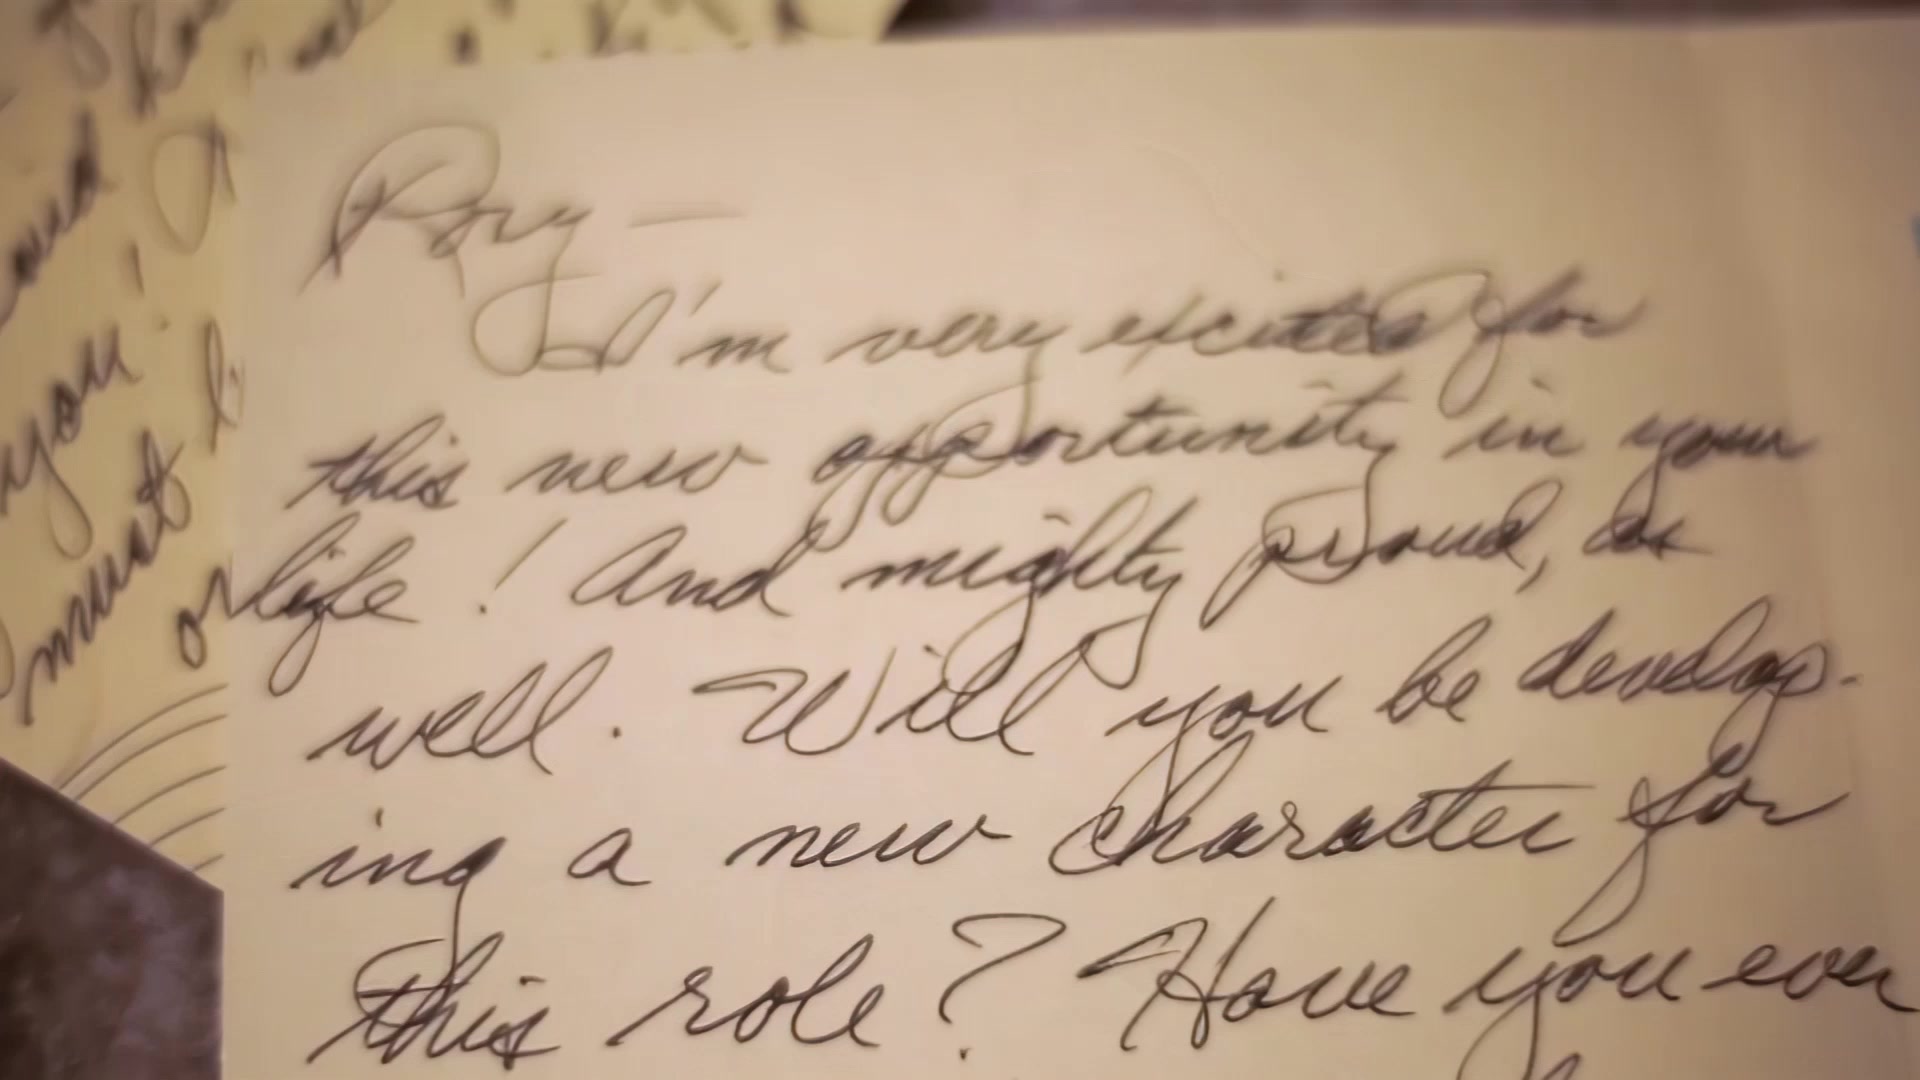 Rory —
I'm very excited for
this new opportunity in your
life! And mighty proud, as
well. Will you be develop-
ing a new character for
this role? Have you ever
and
you!
must
or